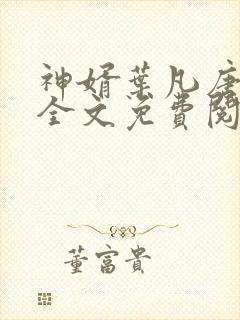 神婿葉凡唐
全文免費閱
董富貴